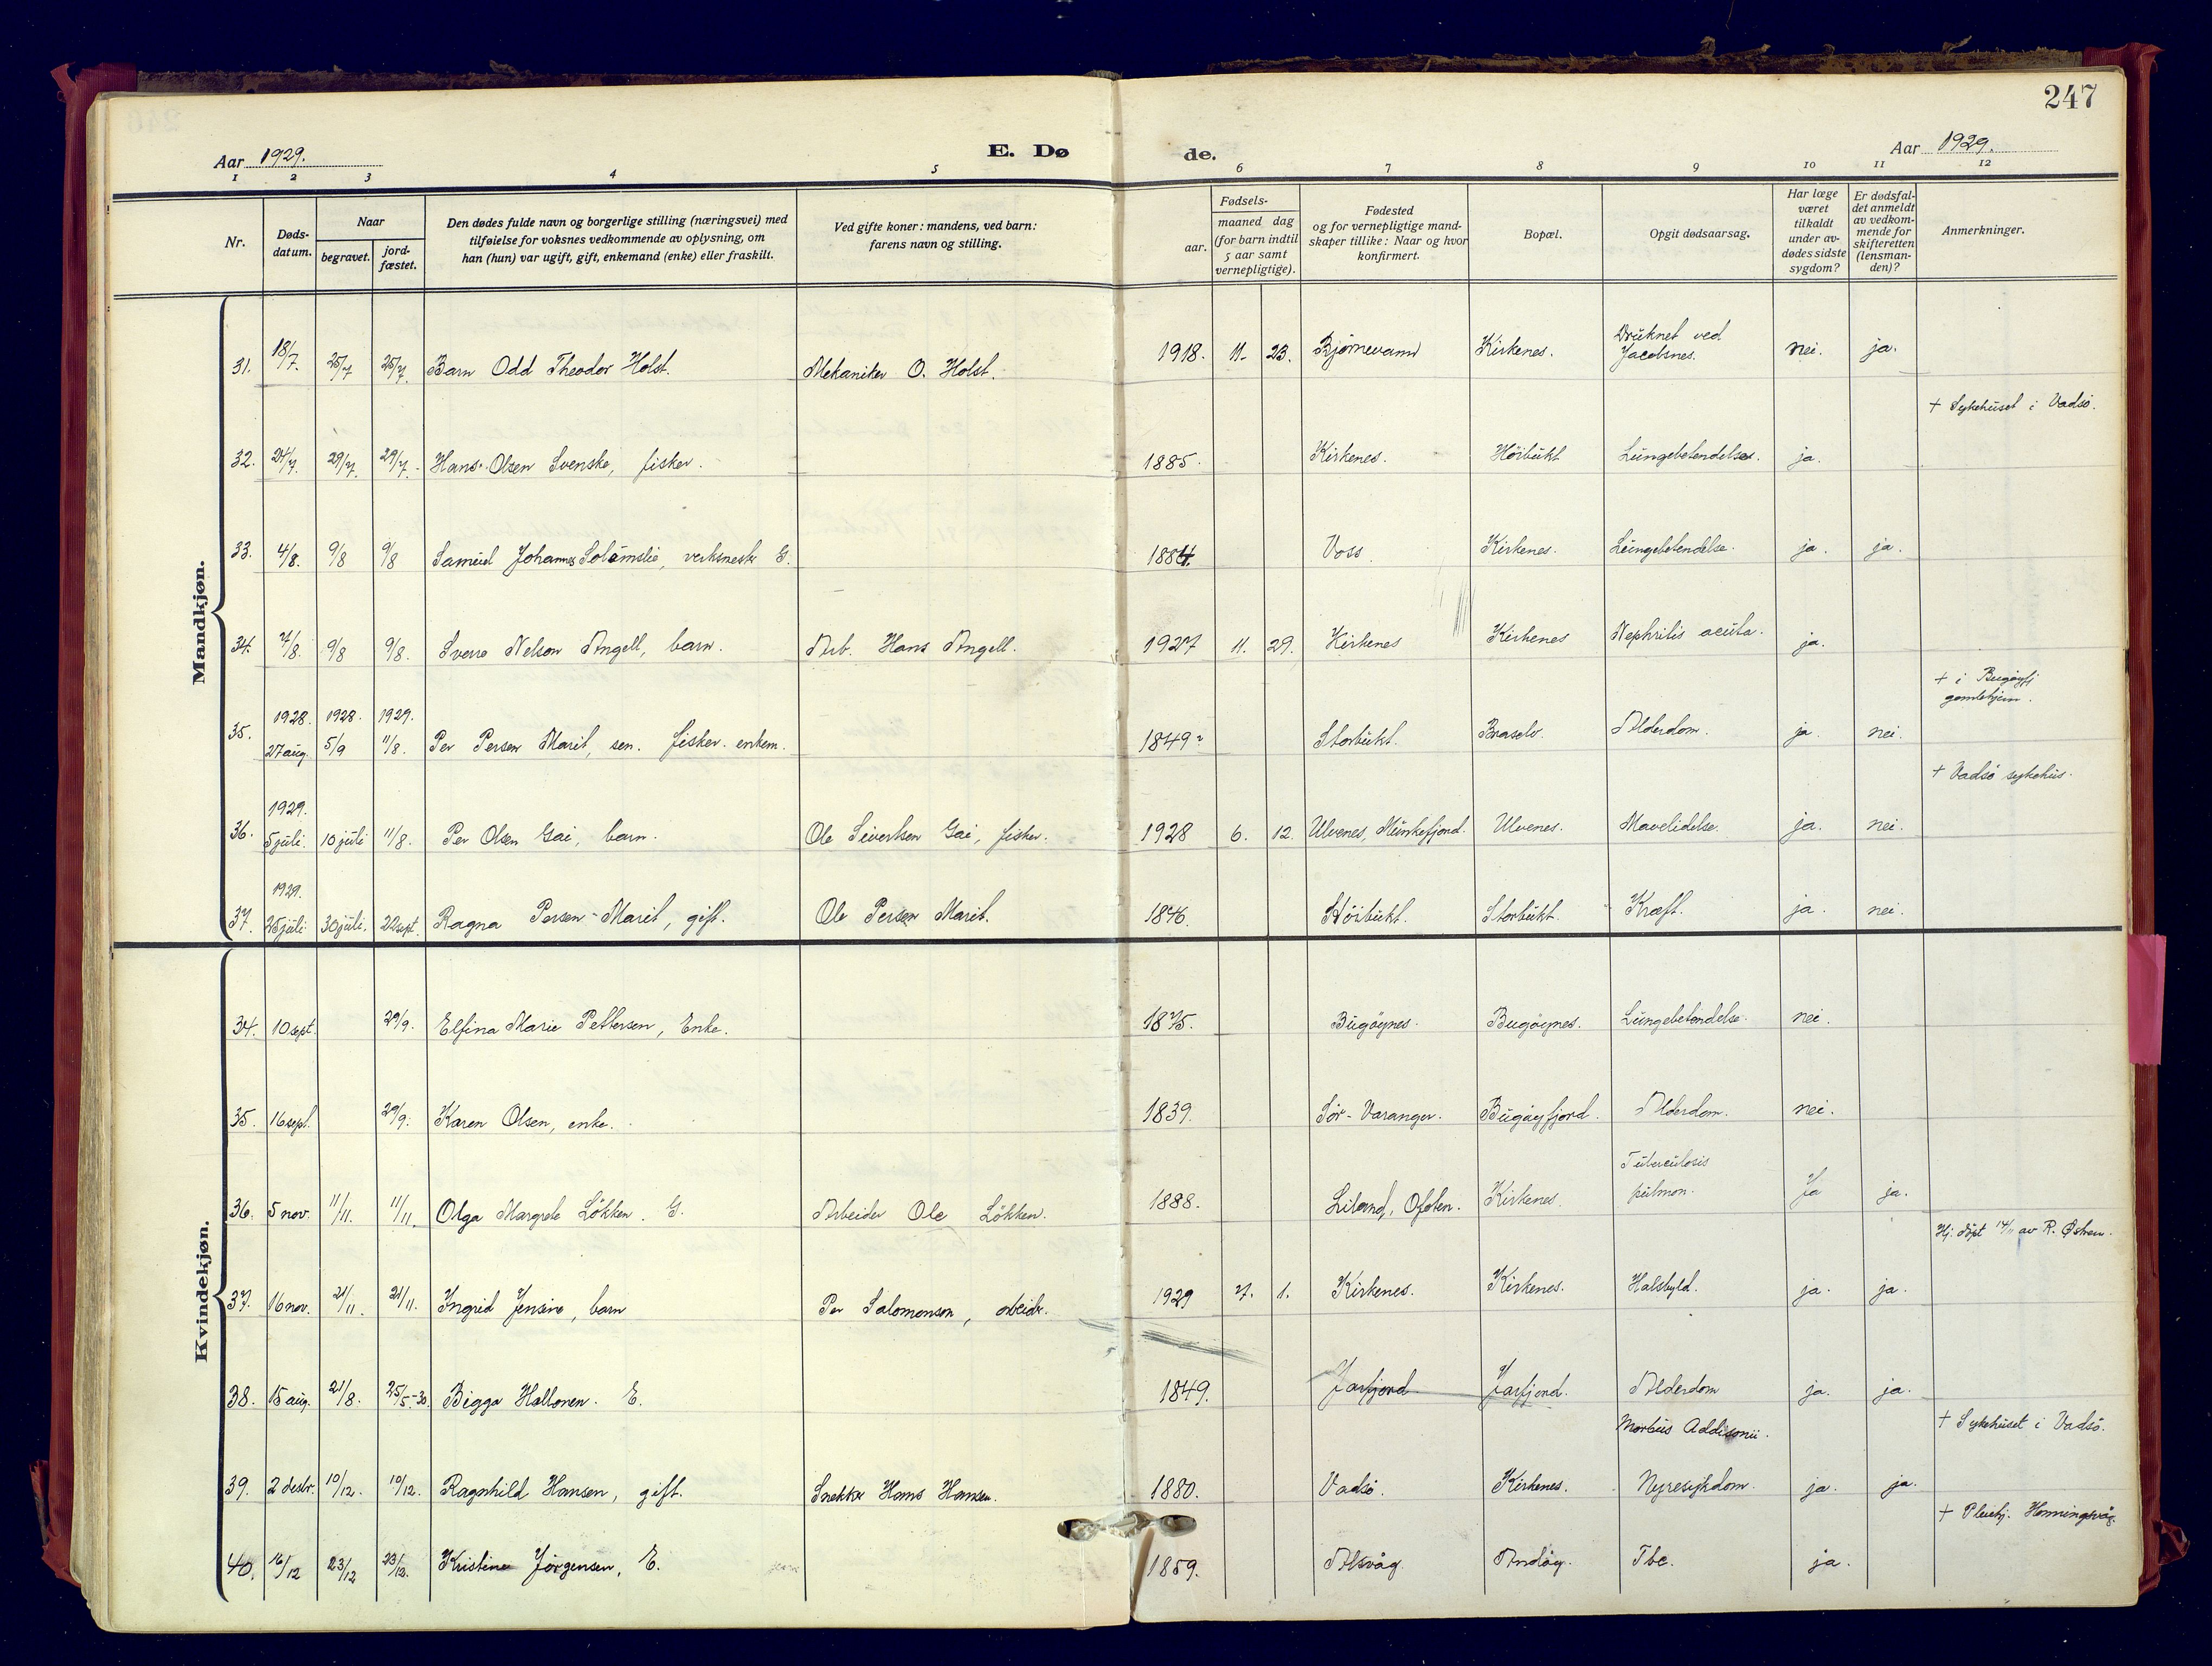 247
Aar 1929. E. Dø de. Aar 1929.
1 2 3 4 5 6 7 8 9 10 11 12
Nr.
Døds-
datum.
Naar
begravet.
jord-
fæstet.
Den dødes fulde navn og borgerlige stilling (næringsvei) med
tilføielse for voksnes vedkommende av oplysning, om
han (hun) var ugift, gift, enkemand (enke) eller fraskilt.
Ved gifte koner: mandens, ved barn:
farens navn og stilling.
Fødsels-
aar.
maaned dag
(for barn indtil
5 aar samt
vernepligtige).
Fødested
og for vernepligtige mand-
skaper tillike: Naar og hvor
konfirmert.
Bopæl.
Opgit dødsaarsag.
Har læge
været
tilkaldt
under av-
dødes sidste
sygdom?
Er dødsfal-
det anmeldt
av vedkom-
mende for
skifteretten
(lensman-
den)?
Anmerkninger.
Mandkjøn.
31. 18/7. 25/7 25/7. Barn Odd Theodor Holst. Mekaniker O. Holst. 1918. 11. 23. Bjørnevann Kirkenes. Druknet ved Jacobsnes. nei. ja.
+ Sykehuset i Vadsö.
32. 24/7. 29/7. 29/7. Hans Olsen Svenske, fisker. 1885. Kirkenes. Höibukt Lungebetendelse. ja.
33. 4/8. 9/8 9/8 Samuel Johannes verksmestr G. 1884. Voss. Kirkenes. Lungebetendelse. ja. ja.
34. 4/8. 9/8 9/8. Sverre Nelson Angell, barn. Arb. Hans Angell. 1927 11. 29. Kirkenes Kirkenes Nephritis acuta. ja.
+ i Bugöyfj
gamlehjem.
1928. 1928. 1929.
35. 27 aug. 5/9 11/8. Per Persen Marit, sen. fisker. enkem. 1849? Storbukt. Braselv. Alderdom. ja. nei.
+ Vadsö sykehus.
1929.
36. 5 juli. 10 juli 11/8. Per Olsen Gai, barn. Ole Sivertsen Gai, fisker. 1928 6. 12. Ulvenes, Munkefjord. Ulvenes. Mavelidelse. ja. nei.
1929.
37. 25 juli. 30 juli. 22 sept. Ragna Persen-Marit, gift. Ole Persen Marit. 1876. Höibukt. Storbukt. Kræft. ja. nei.
Kvindekjøn.
34. 10 sept. 29/9. Elfina Marie Pettersen, Enke. 1875. Bugöynes. Bugöynes. Lungebetendelse. nei.
35. 16 sept. 29/9. Karen Olsen, enke. 1839. Sör-Varanger. Bugöyfjord. Alderdom. nei.
Tuberculosis
36. 5 nov. 11/11. 11/11. Olga Margrete Lökken. G. Arbeider Ole Lökken. 1888. Liland, Ofoten. Kirkenes. pulmon. Ja ja.
Hj. döpt 14/11 av R. Østrem.
37. 16 nov. 21/11. 21/11. Ingrid Jensine, barn Per Salomonsen, arbeidr. 1929 7. 1. Kirkenes. Kirkenes. Halsbyld. ja. ja.
38. 15 aug. 21/8. 25/5-30. Bigga Hallonen. E. 1849. Jarfjord Jarfjord. Alderdom ja. ja.
Morbus Addisonii. + Sykehuset i Vadsö.
39. 2 desbr. 10/12. 10/12. Ragnhild Hansen, gift. Snekker Hans Hansen. 1880. Vadsö. Kirkenes. Nyresykdom. ja. ja.
+ Pleiehj. Honningsvåg.
40. 16/12 23/12 23/12. Kristine Jörgensen, E. 1859. Alsvåg. Andöy. Tbc. ja.